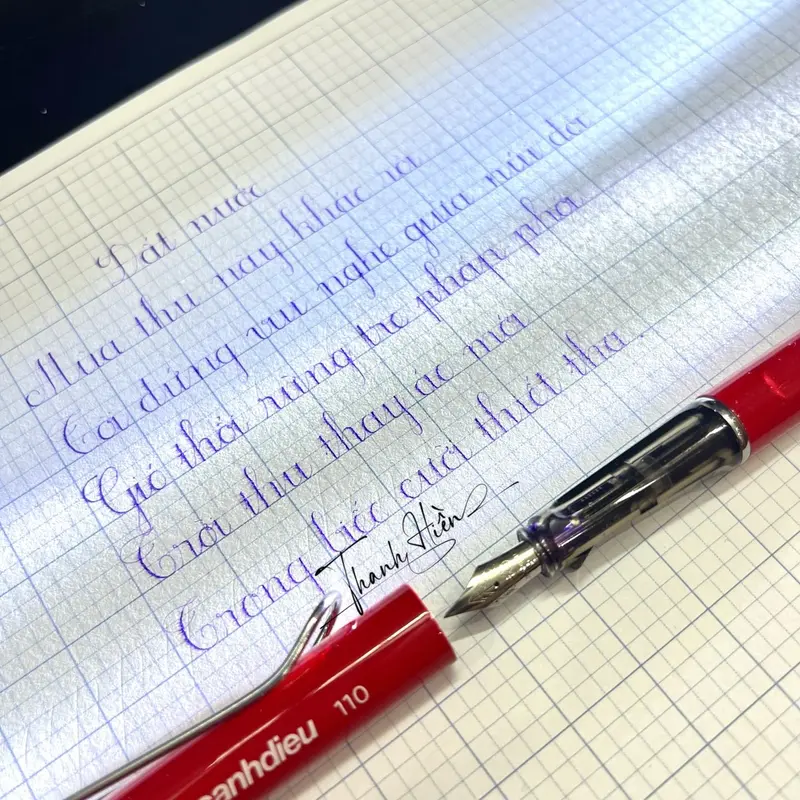 Đất nước
Mùa thu nay khác rồi
Tôi đứng vui nghe giữa núi đồi
Gió thổi rừng tre phấp phới
Trời thu thay áo mới
Trong biếc cười thiết tha.
Thanh Hiền
anhdieu 110